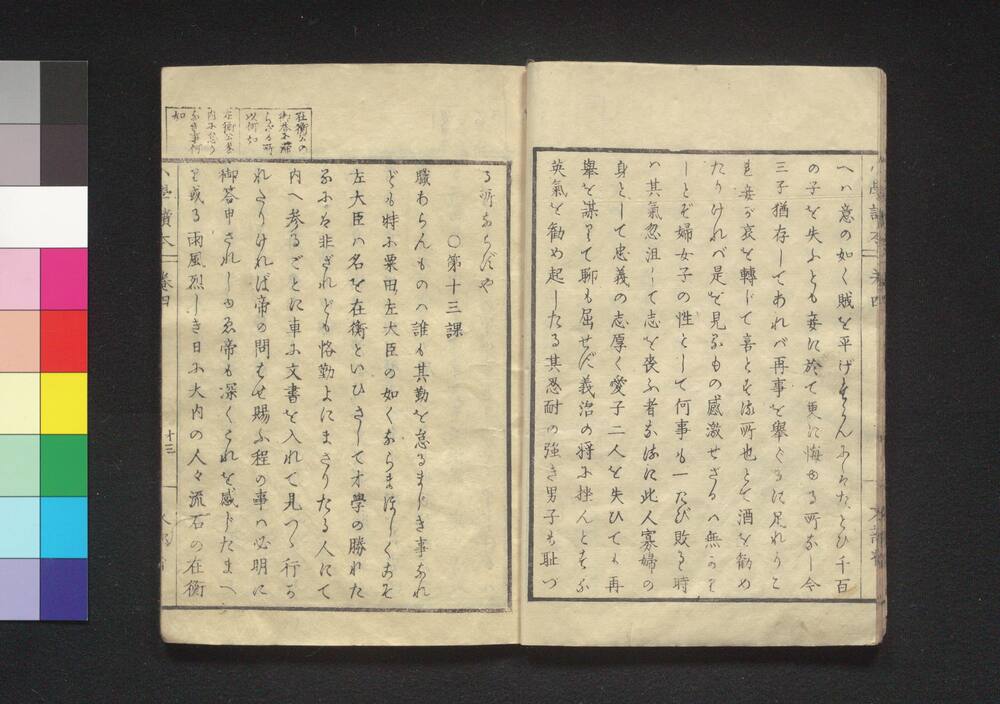 へハ意の如く賊を平げまゐらん子らハたとひ千百
の子を失ふとも妾に於て更に悔ゆる所なし今
三子猶存してあれバ再事を擧ぐるに足れりこ
れ妾が哀を轉じて喜とする所也とて酒を勸め
たりけれバ是を見るもの感激せざるハ無かり
しとぞ婦女子の性として何事も一たび敗るゝ時
ハ其氣忽沮して志を喪ふ者なるに此人寡婦の
身として忠義の志厚く愛子二人を失ひても再
擧を謀りて聊も屈せず義治の將に挫んとする
英氣を勸め起したる其忍耐の強き男子も耻づ
る所ならずや
〇第十三課
職あらんものハ誰も其勤を怠るまじき事なれ
ども特に粟田左大臣の如くならまほしくこそ
左大臣ハ名を在衡といひさして才學の勝れた
るにハ非ざれども恪勤よにまさりたる人にて
内へ參るごとに車に文書を入れて見つゝ行か
れたりければ帝の問はせ賜ふ程の事ハ必明に
御答申されしゆゑ帝も深くこれを感じたまへ
り或る雨風烈しき日に大内の人々流石の在衡
在衡公の
御答に滯
らざる所
以何如
在衡公參
内に怠り
なき事何
如
小學讀本
卷四
十三